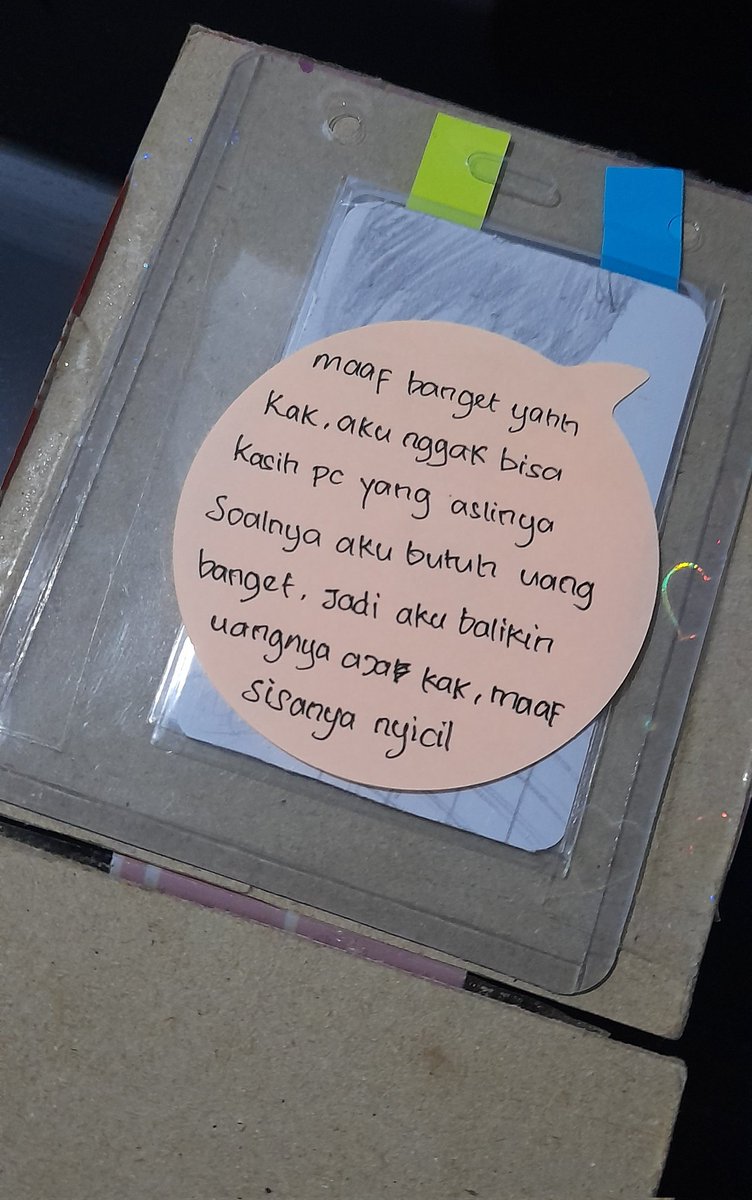 maaf banget yahh
kak, aku nggak bisa
kasih pc yang aslinya
soalnya aku butuh uang
banget, jadi aku balikin
uangnya aja kak, maaf
sisanya nyicil